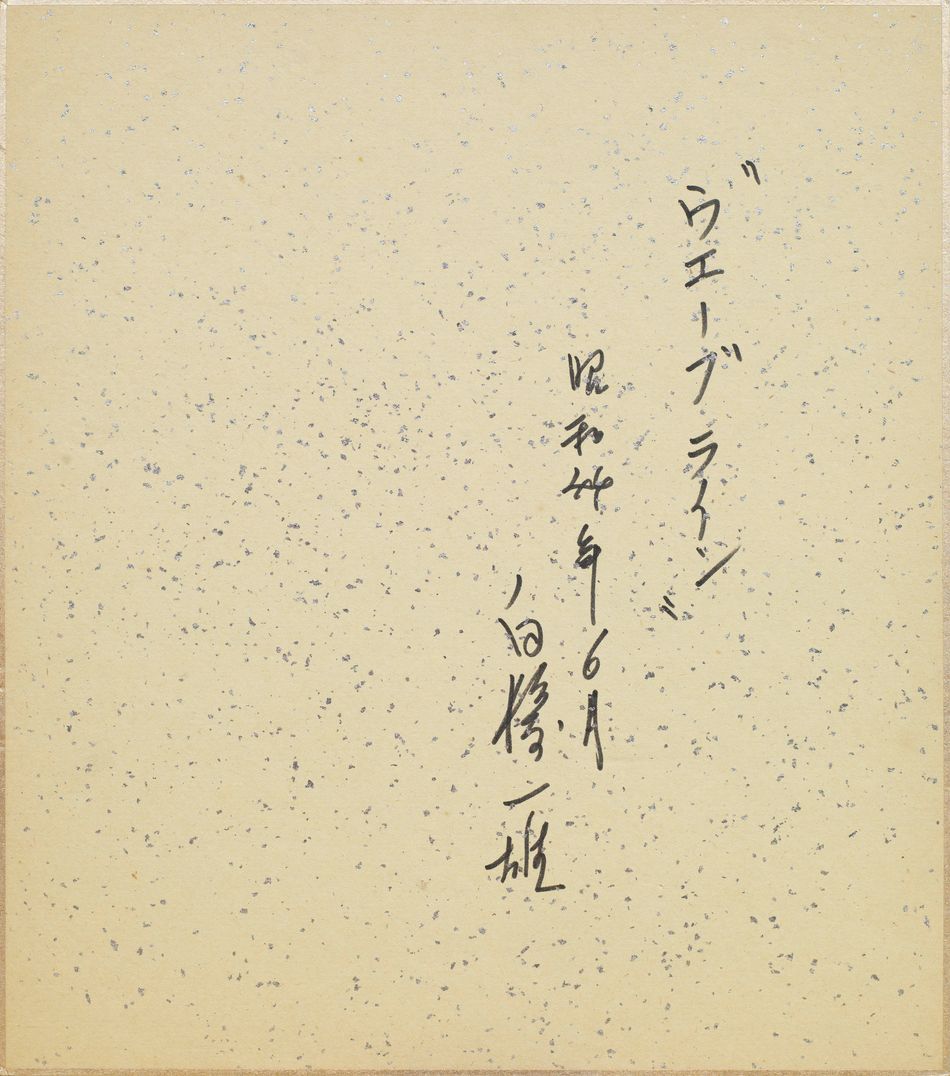 "ヴエーブライン"
昭和44年6月
白髪一雄